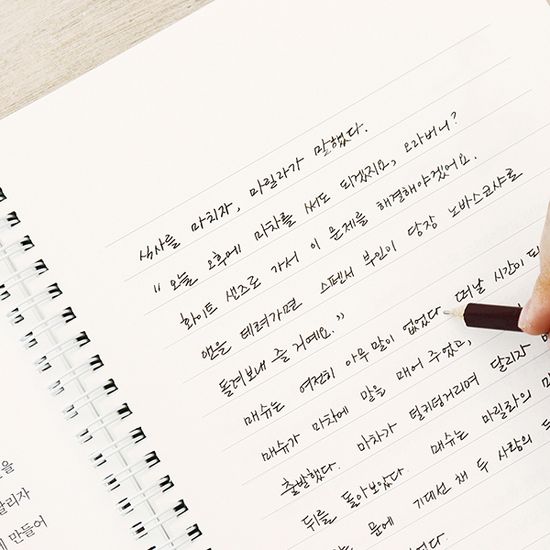 식사를 마치자, 마릴라가 말했다.
"오늘 오후에 마차를 써도 되겠지요, 오라버니?
화이트 샌즈로 가서 이 문제를 해결해야겠어요.
앤을 데려가면 스펜서 부인이 당장 노바스코샤로
돌려보내 줄 거예요."
매슈는 여전히 아무 말이 없었다 떠날 시간이
매슈가 마차에 말을 매어 주었고,
출발했다. 마차가 덜커덩거리며 달리자
뒤를 돌아보았다. 매슈는 마릴라의
문에 기대선 채 두 사람의
만들어